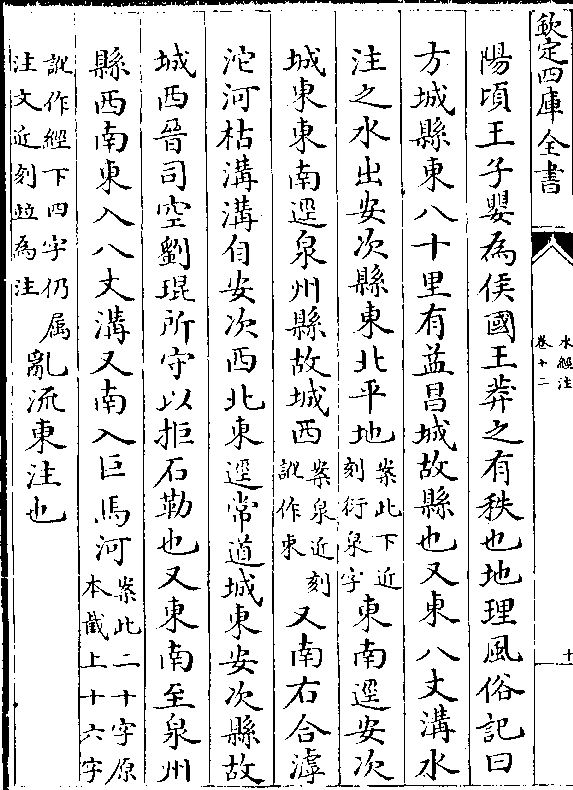 欽定四庫全書
水經注
卷十二
十
陽頃王子嬰為侯國王莽之有秩也地理風俗記曰
方城縣東八十里有益昌城故縣也又東八丈溝水
注之水出安次縣東北平地案此下近刻衍泉字東南逕安次
城東東南逕泉州縣故城西案泉近刻訛作東又南右合滹
沱河枯溝溝自安次西北東逕常道城東安次縣故
城西晉司空劉琨所守以拒石勒也又東南至泉州
縣西南東入八丈溝又南入巨馬河案此二十字原本截上十六字
訛作經下四字仍属注文近刻並為注亂流東注也